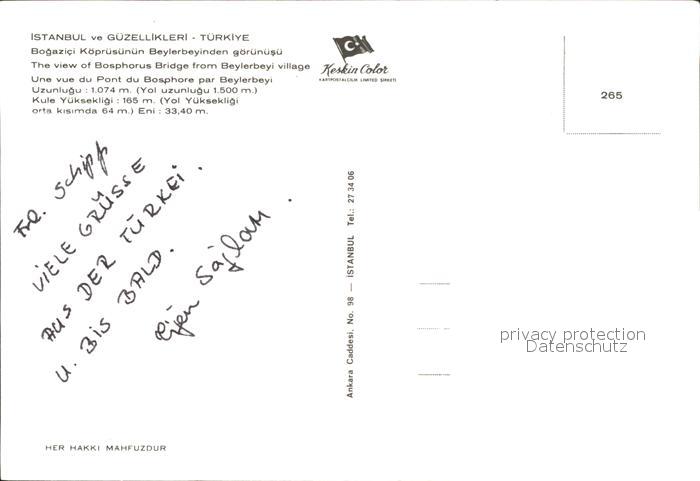 İSTANBUL ve GÜZELLİKLERİ - TÜRKİYE
Boğaziçi Köprüsünün Beylerbeyinden görünüşü
The view of Bosphorus Bridge from Beylerbeyi village
Une vue du Pont du Bosphore par Beylerbeyi
Uzunluğu : 1.074 m. (Yol uzunluğu 1.500 m.)
Kule Yüksekliği : 165 m. (Yol Yüksekliği
orta kısımda 64 m.) Eni : 33,40 m.
Keskin Color
KARTPOSTALCILIK LIMITED ŞİRKETİ
265
Frl. Schipp
VIELE GRÜSSE
AUS DER TÜRKEI.
U. BIS BALD.
Sağlam
Ankara Caddesi, No. 98 — İSTANBUL Tel.: 27 34 06
privacy protection
Datenschutz
HER HAKKI MAHFUZDUR